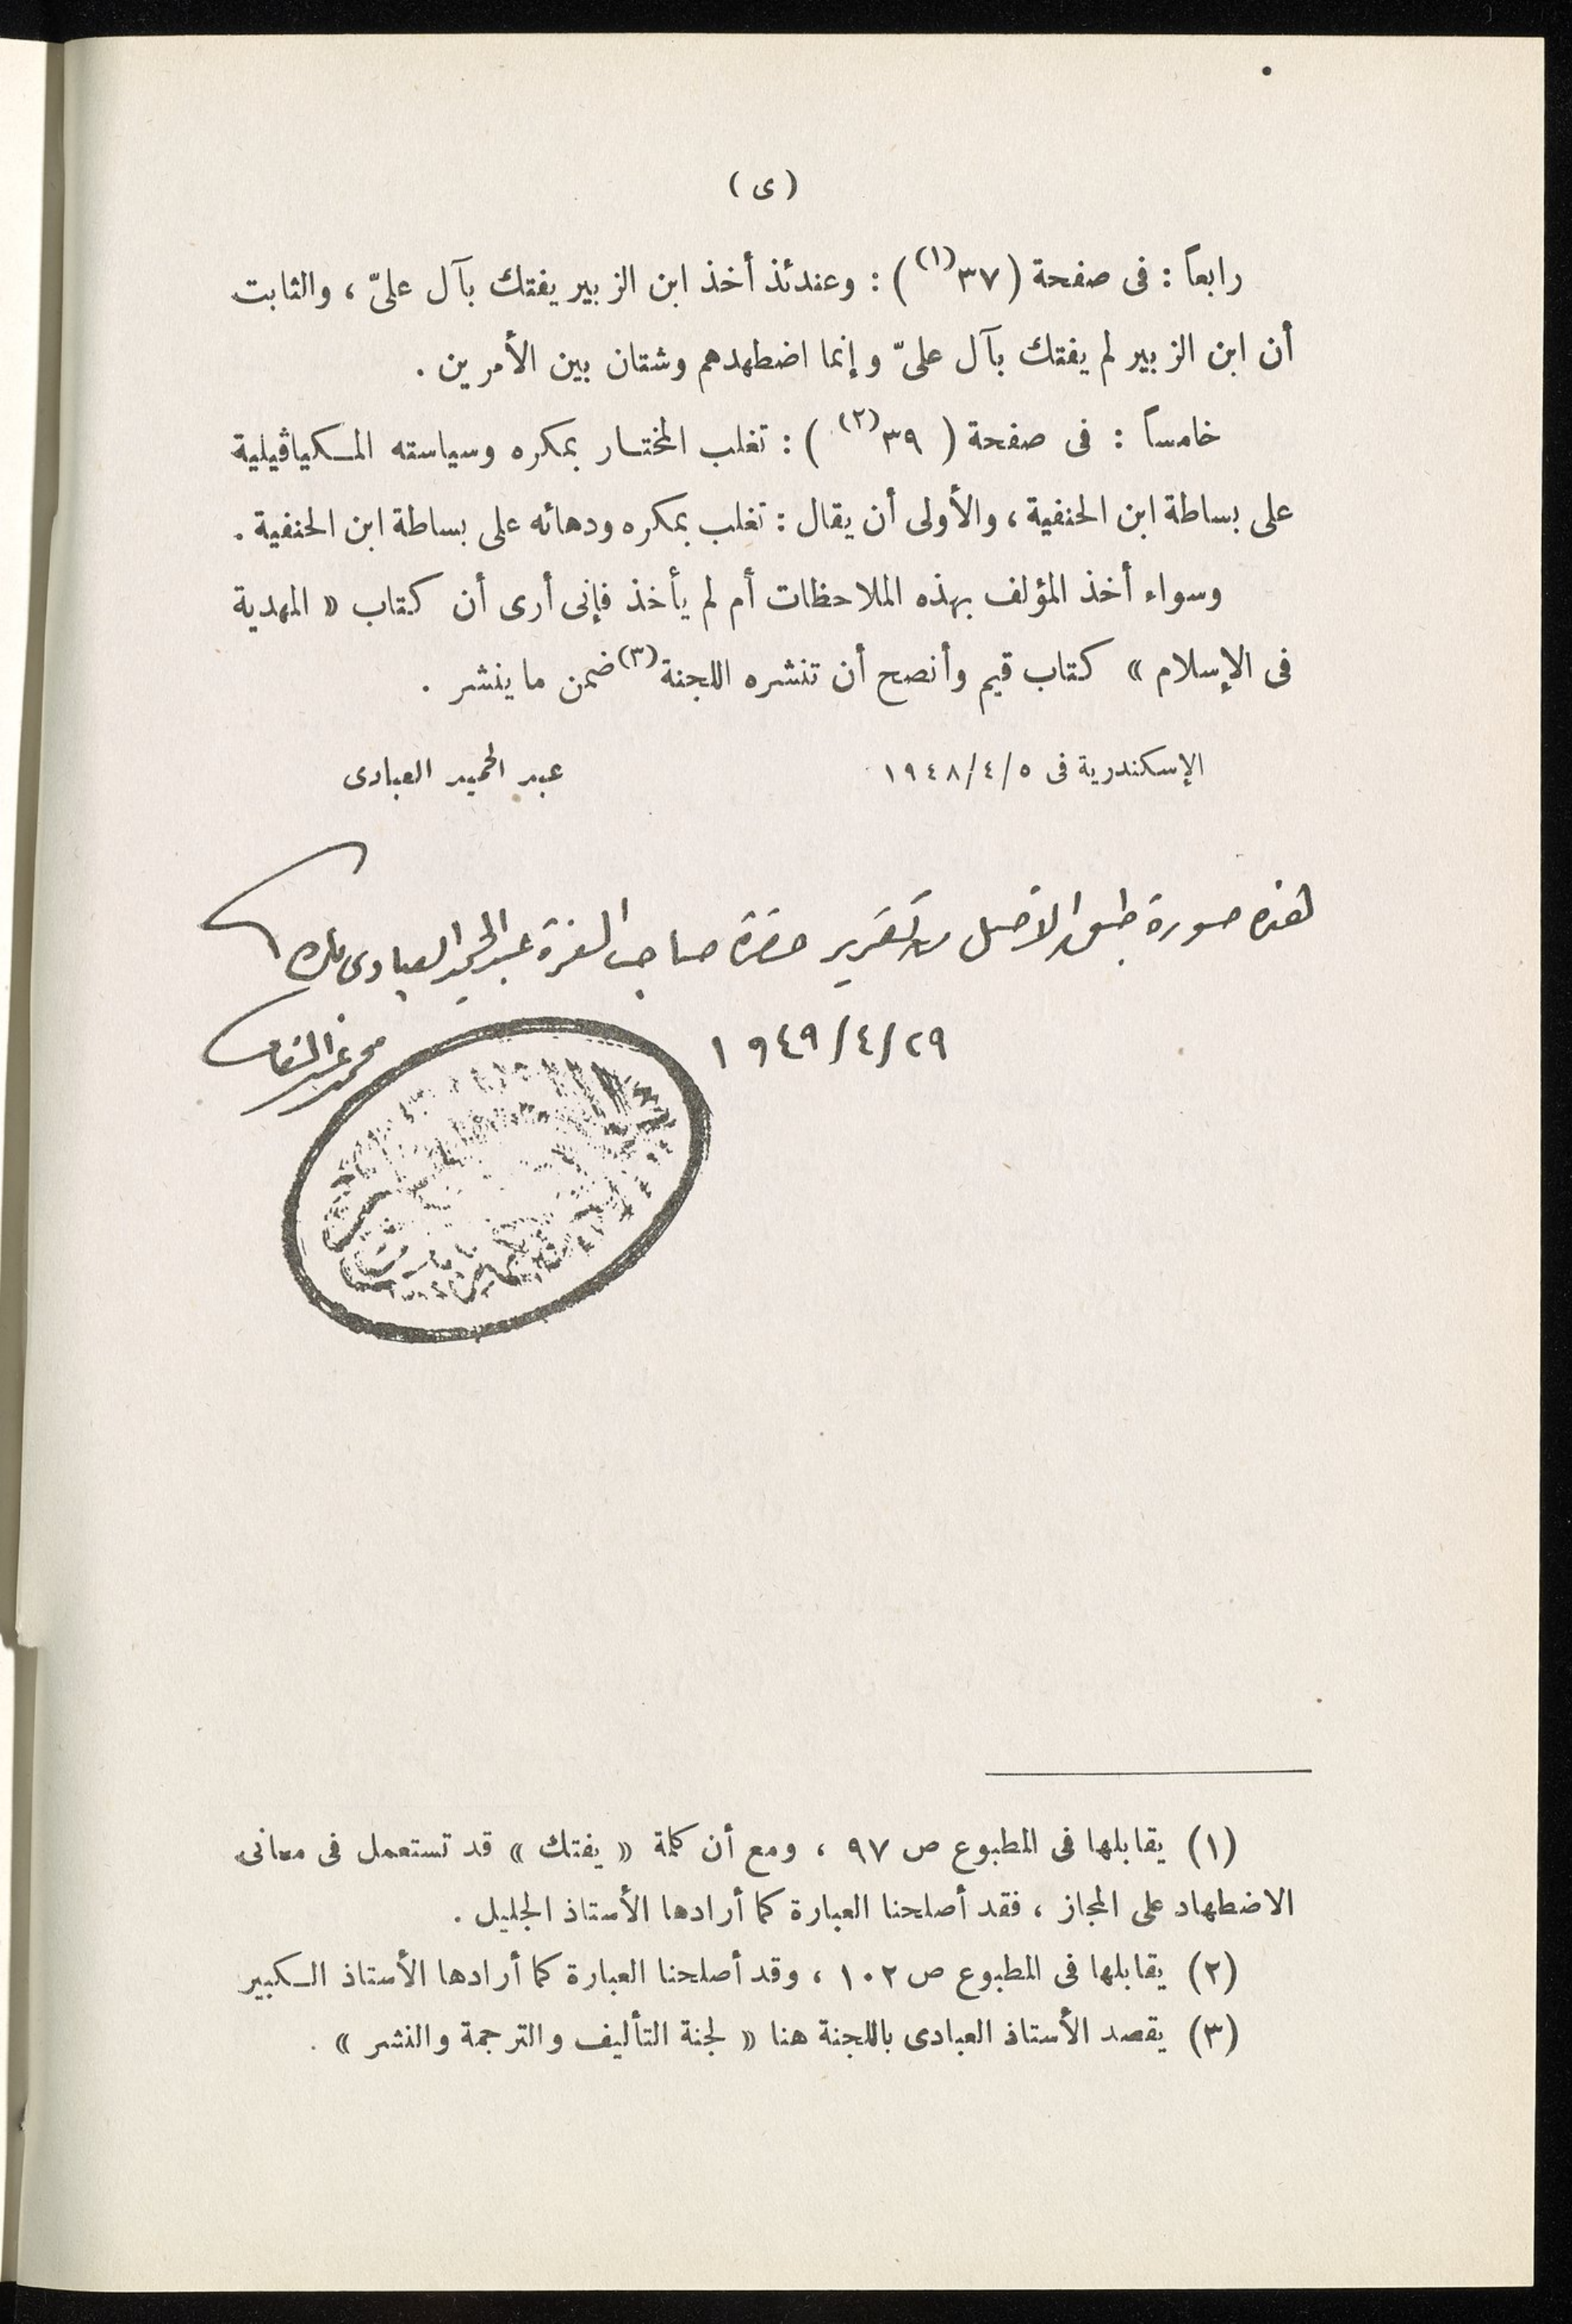 (ى)
رابعاً : فى صفحة (٣٧(١)) : وعندئذ أخذ ابن الزبير يفتك بآل علىّ ، والثابت
أن ابن الزبير لم يفتك بآل علىّ وإنما اضطهدهم وشتان بين الأمرين .
خامساً : فى صفحة ( ٣٩(٢) ) : تغلب المختار بمكره وسياسته المكياڤيلية
على بساطة ابن الحنفية ، والأولى أن يقال : تغلب بمكره ودهائه على بساطة ابن الحنفية .
وسواء أخذ المؤلف بهذه الملاحظات أم لم يأخذ فإنى أرى أن كتاب « المهدية
فى الإسلام » كتاب قيم وأنصح أن تنشره اللجنة(٣) ضمن ما ينشر .
الإسكندرية فى ١٩٤٨/٤/٥ عبد الحميد العبادى
هذه صورة طبق الأصل من تقرير حضرة صاحب العزة عبد الحميد العبادى بك
١٩٤٩/٤/٢٩
محمد عبد
(١) يقابلها فى المطبوع ص ٩٧ ، ومع أن كلمة « يفتك » قد تستعمل فى معانى
الاضطهاد على المجاز ، فقد أصلحنا العبارة كما أرادها الأستاذ الجليل .
(٢) يقابلها فى المطبوع ص ١٠٢ ، وقد أصلحنا العبارة كما أرادها الأستاذ الكبير
(٣) يقصد الأستاذ العبادى باللجنة هنا « لجنة التأليف والترجمة والنشر » .